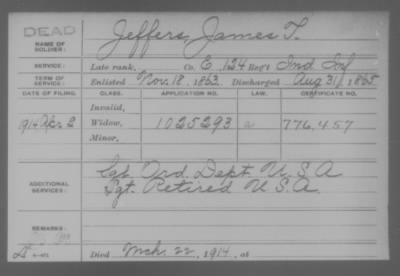 DEAD
NAME OF SOLDIER: Jeffers, James T.
SERVICE: Late rank, Co. E, 124 Reg't Ind Inf
TERM OF SERVICE: Enlisted Nov. 18, 1863 Discharged Aug 31, 1865
DATE OF FILING. CLASS. APPLICATION NO. LAW. CERTIFICATE NO.
Invalid,
1914 Apr 2 Widow, 1025293 776,457
Minor,
ADDITIONAL SERVICES: Sgt. Ord. Dept. U.S.A
Sgt. Retired U.S.A.
REMARKS:
Died Mch. 22, 1914, at